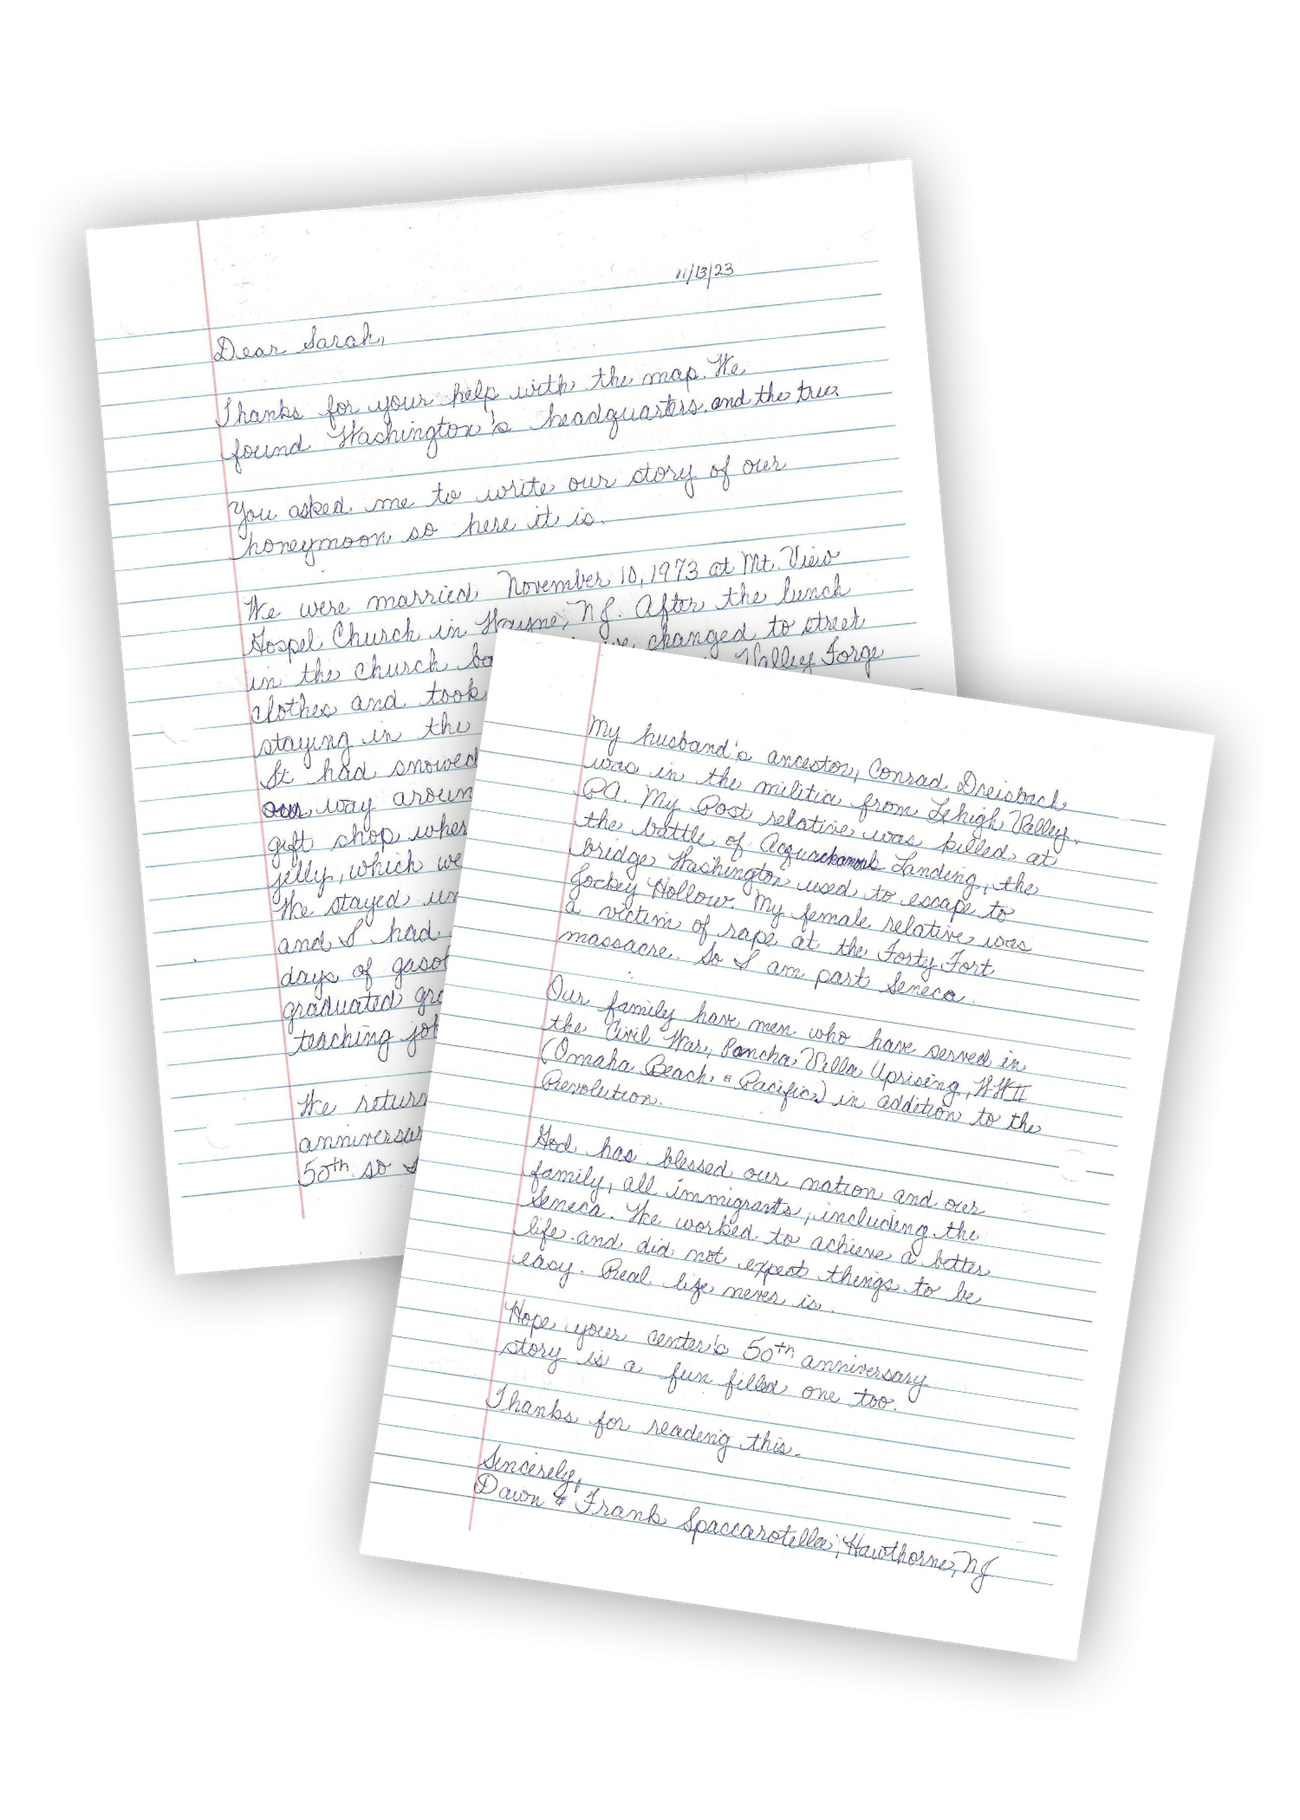 11/13/23
Dear Sarah,
Thanks for your help with the map. We
found Washington's headquarters and the tree.
You asked me to write our story of our
honeymoon so here it is.
We were married November 10, 1973 at Mt. View
Gospel Church in Wayne, NJ. After the lunch
in the church changed to street
clothes and took Valley Forge
staying in the
It had snowed
our way aroun
gift shop wher
jelly, which we
We stayed un
and I had
days of gasol
graduated gra
teaching job
We return
anniversar
50th so I
My husband's ancestor, Conrad Dreisbach
was in the militia from Lehigh Valley,
PA. My Post relative was killed at
the battle of Acquackanonk Landing, the
bridge Washington used to escape to
Jockey Hollow. My female relative was
a victim of rape at the Forty Fort
massacre. So I am part Seneca.
Our family have men who have served in
the Civil War, Pancha Villa Uprising, WWII
(Omaha Beach & Pacific) in addition to the
Revolution.
God has blessed our nation and our
family, all immigrants, including the
Seneca. We worked to achieve a better
life and did not expect things to be
easy. Real life never is.
Hope your center's 50th anniversary
story is a fun filled one too.
Thanks for reading this.
Sincerely,
Dawn & Frank Spaccarotella, Hawthorne, NJ